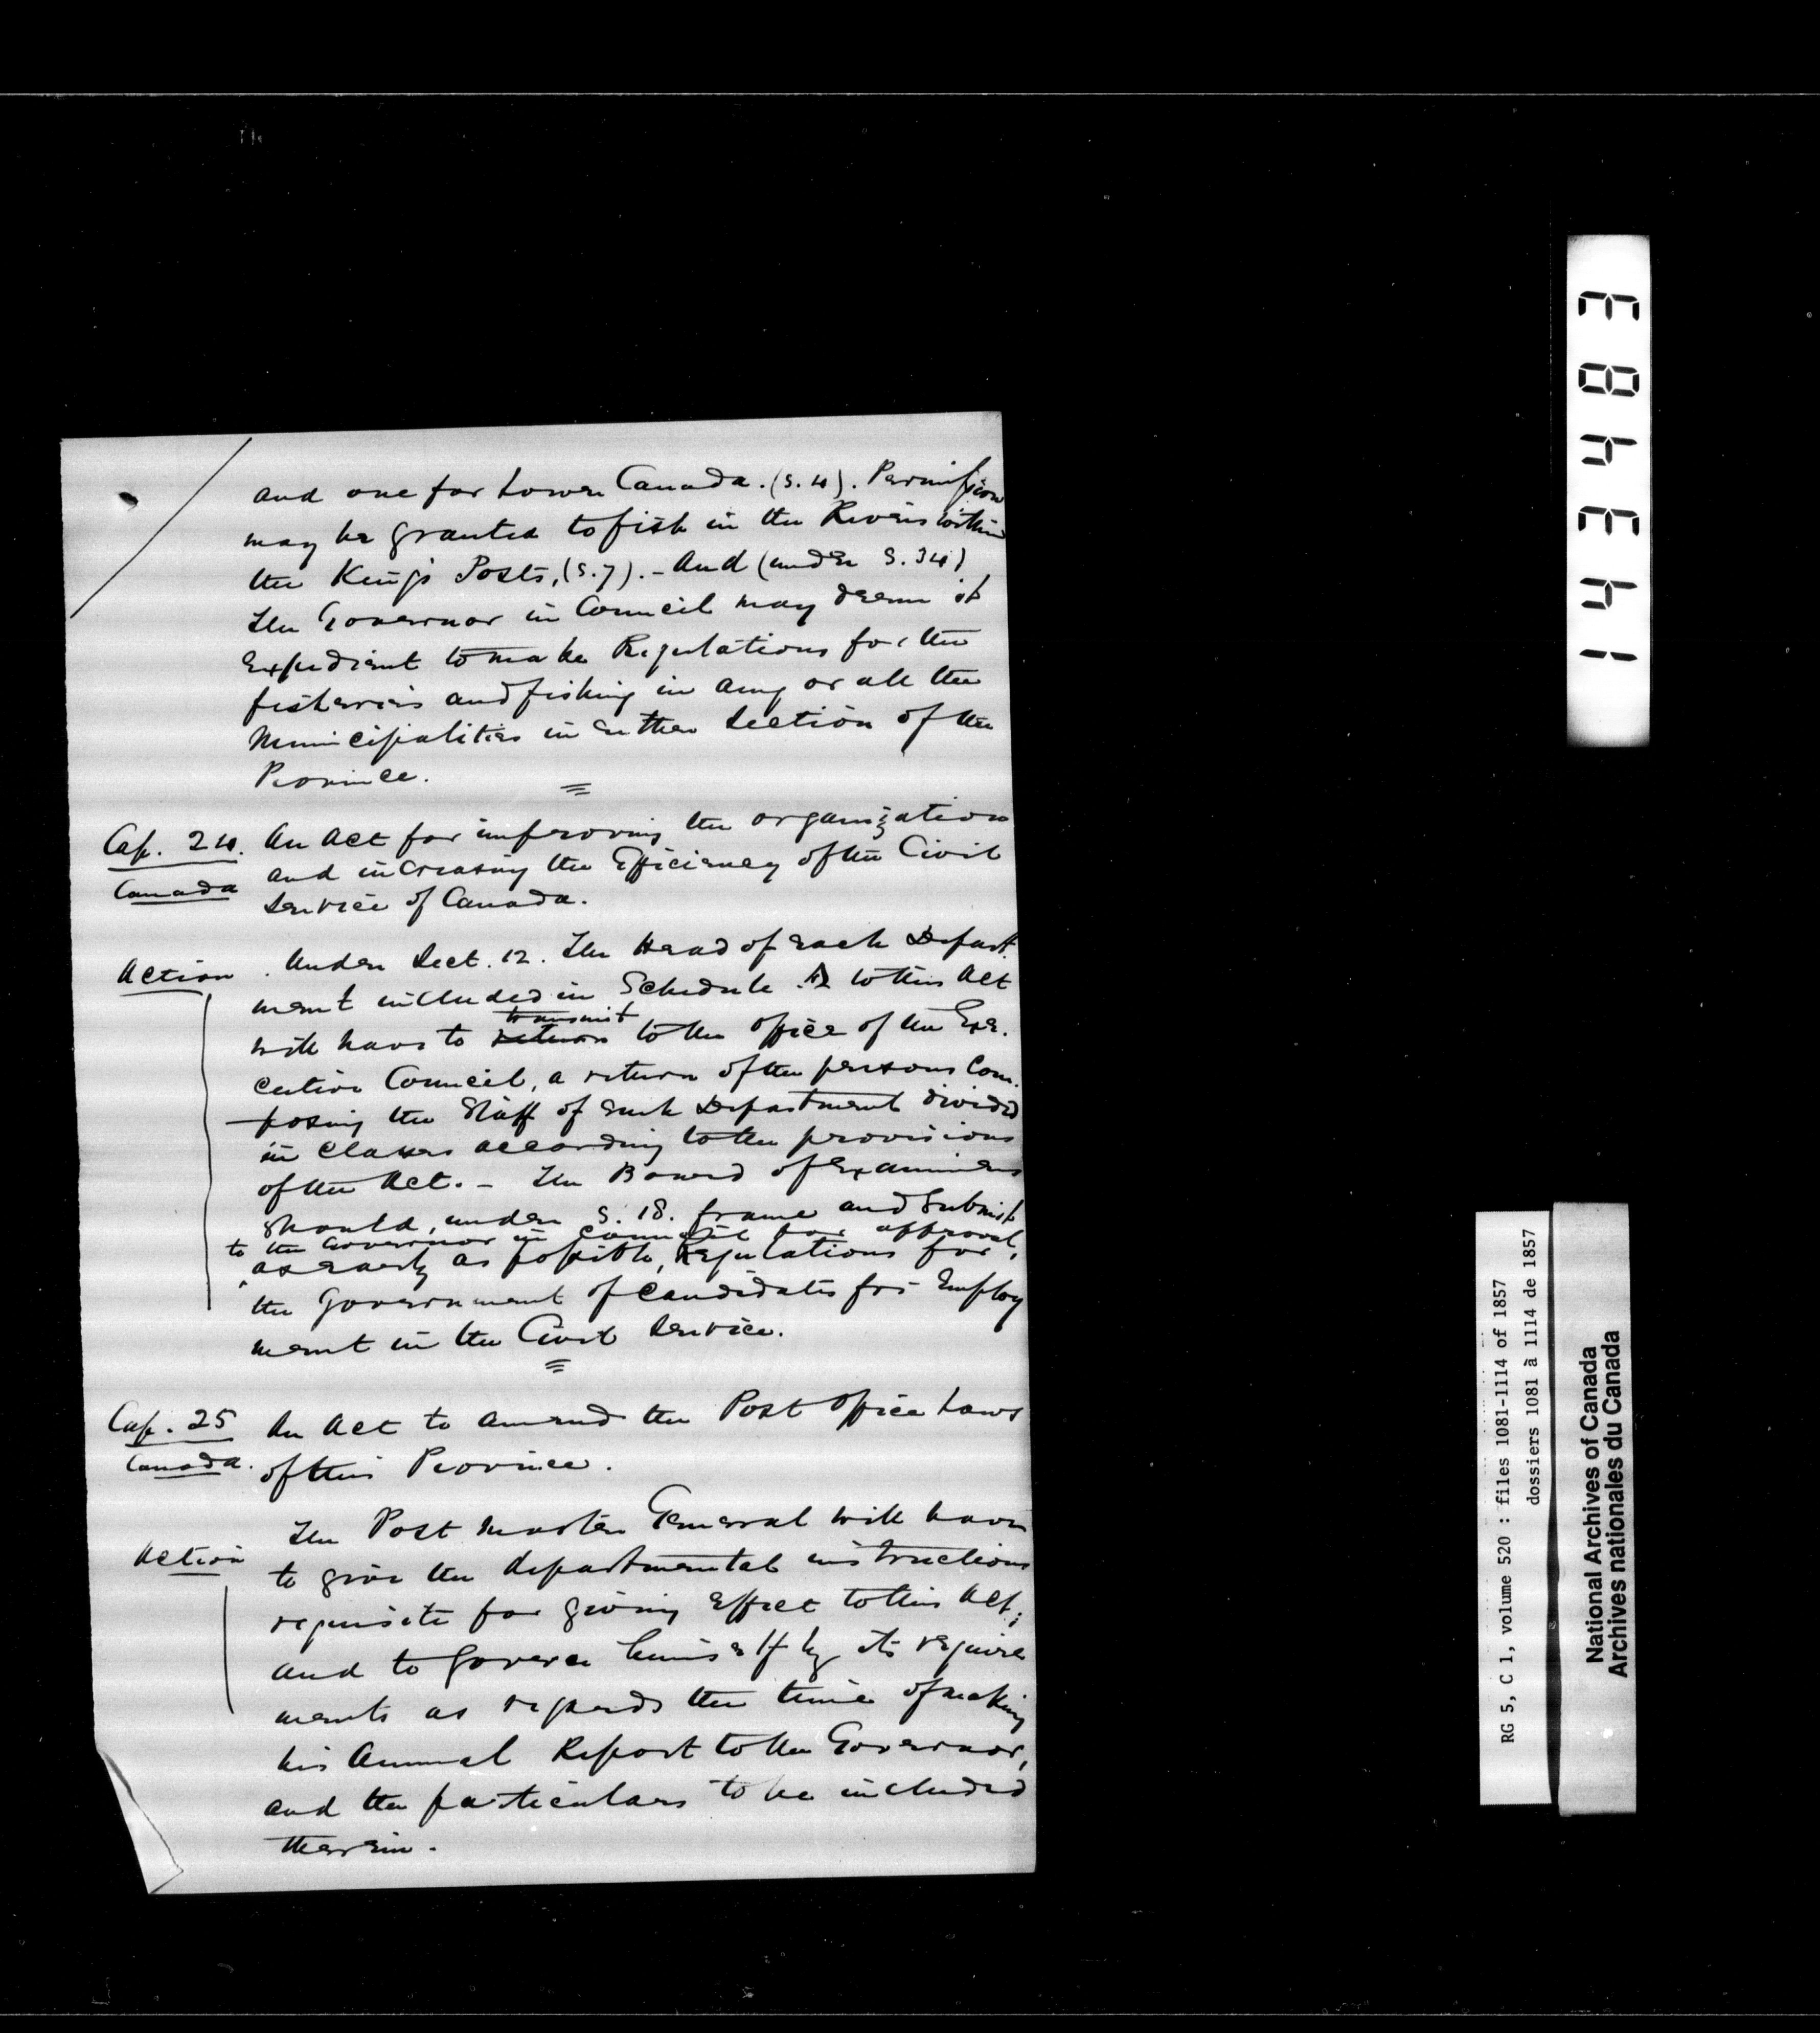 and one for Lower Canada. (S. 4). Permission
may be granted to fish in the Rivers within
the King's Posts, (S. 7). - And (under S. 34)
The Governor in Council may deem it
expedient to make Regulations for the
fisheries and fishing in any or all the
Municipalities in either Section of the
Province.
Cap. 24.
Canada
An Act for improving the organization
and increasing the Efficiency of the Civil
Service of Canada.
Action
Under Sect. 12. The Head of each Depart
ment included in Schedule A to this Act
will have to return transmit to the office of the Exe.
cutive Council, a return of the persons com.
posing the Staff of such Department divided
in classes according to the provisions
of the Act. - The Board of Examiners
should, under S. 18. frame and submit
to the Governor in Council for approval,
as early as possible, Regulations for
the Government of Candidates for Employ
ment in the Civil Service.
Cap. 25
Canada.
An Act to amend the Post Office Laws
of this Province.
Action
The Post Master General will have
to give the departmental instructions
requisite for giving effect to this Act;
and to govern himself by its require
ments as regards the time of making
his Annual Report to the Governor,
and the particulars to be included
therein.
14348E
RG 5, C 1, volume 520 : files 1081-1114 of 1857
dossiers 1081 à 1114 de 1857
National Archives of Canada
Archives nationales du Canada